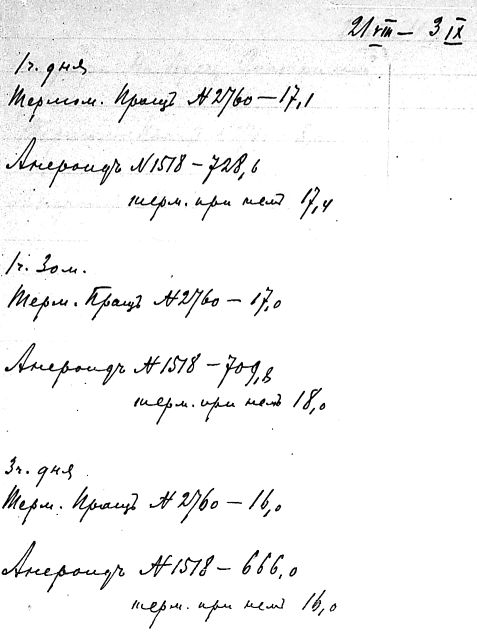 21 VIII — 3 IX
1 ч. дня
Термом. Пращъ № 2760 — 17,1
Анероидъ № 1518 — 728,6
терм. при немъ 17,4
1 ч. 30 м.
Терм. Пращъ № 2760 — 17,0
Анероидъ № 1518 — 709,8
терм. при немъ 18,0
3 ч. дня
Терм. Пращъ № 2760 — 16,0
Анероидъ № 1518 — 666,0
терм. при немъ 16,0